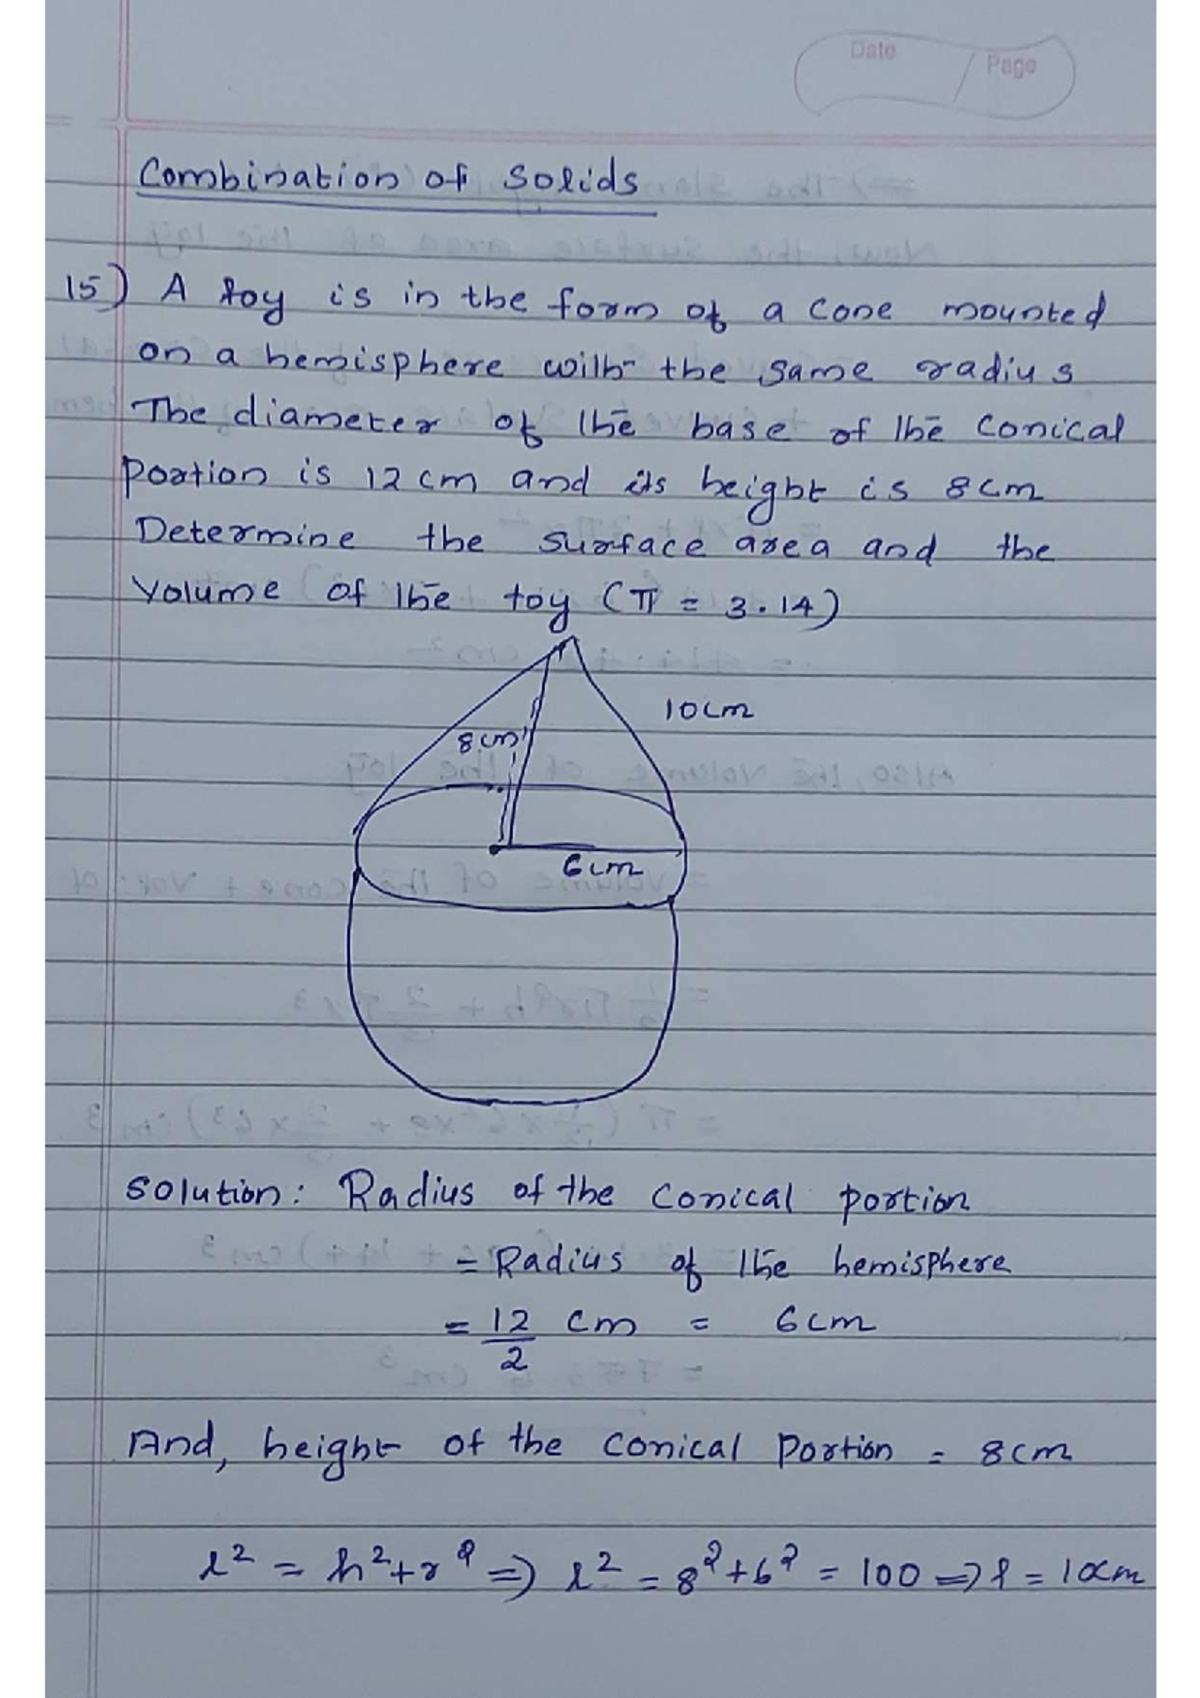 Date
Page
Combination of Solids
15) A toy is in the form of a cone mounted
on a hemisphere with the same radius
The diameter of the base of the conical
portion is 12 cm and its height is 8cm
Determine the surface area and the
volume of the toy (π = 3.14)
10cm
8cm
6cm
Solution: Radius of the conical portion
= Radius of the hemisphere
= 12/2 cm = 6cm
And, height of the conical portion = 8cm
l² = h²+r² ⇒ l² = 8²+6² = 100 ⇒ l = 10cm